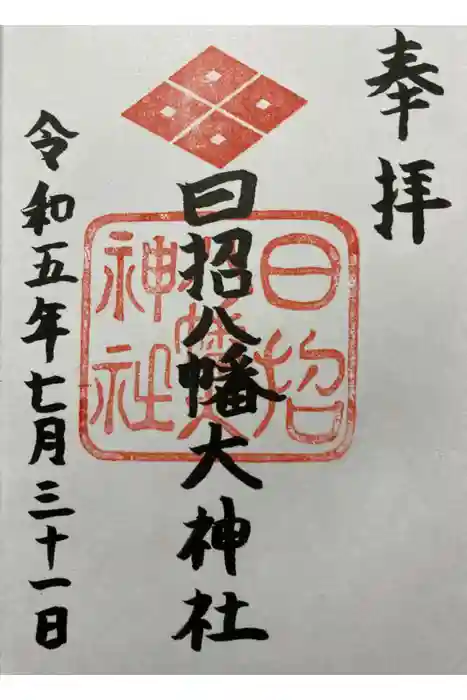 奉拝
日招八幡大神社
日招
八幡大
神社
令和五年七月三十一日